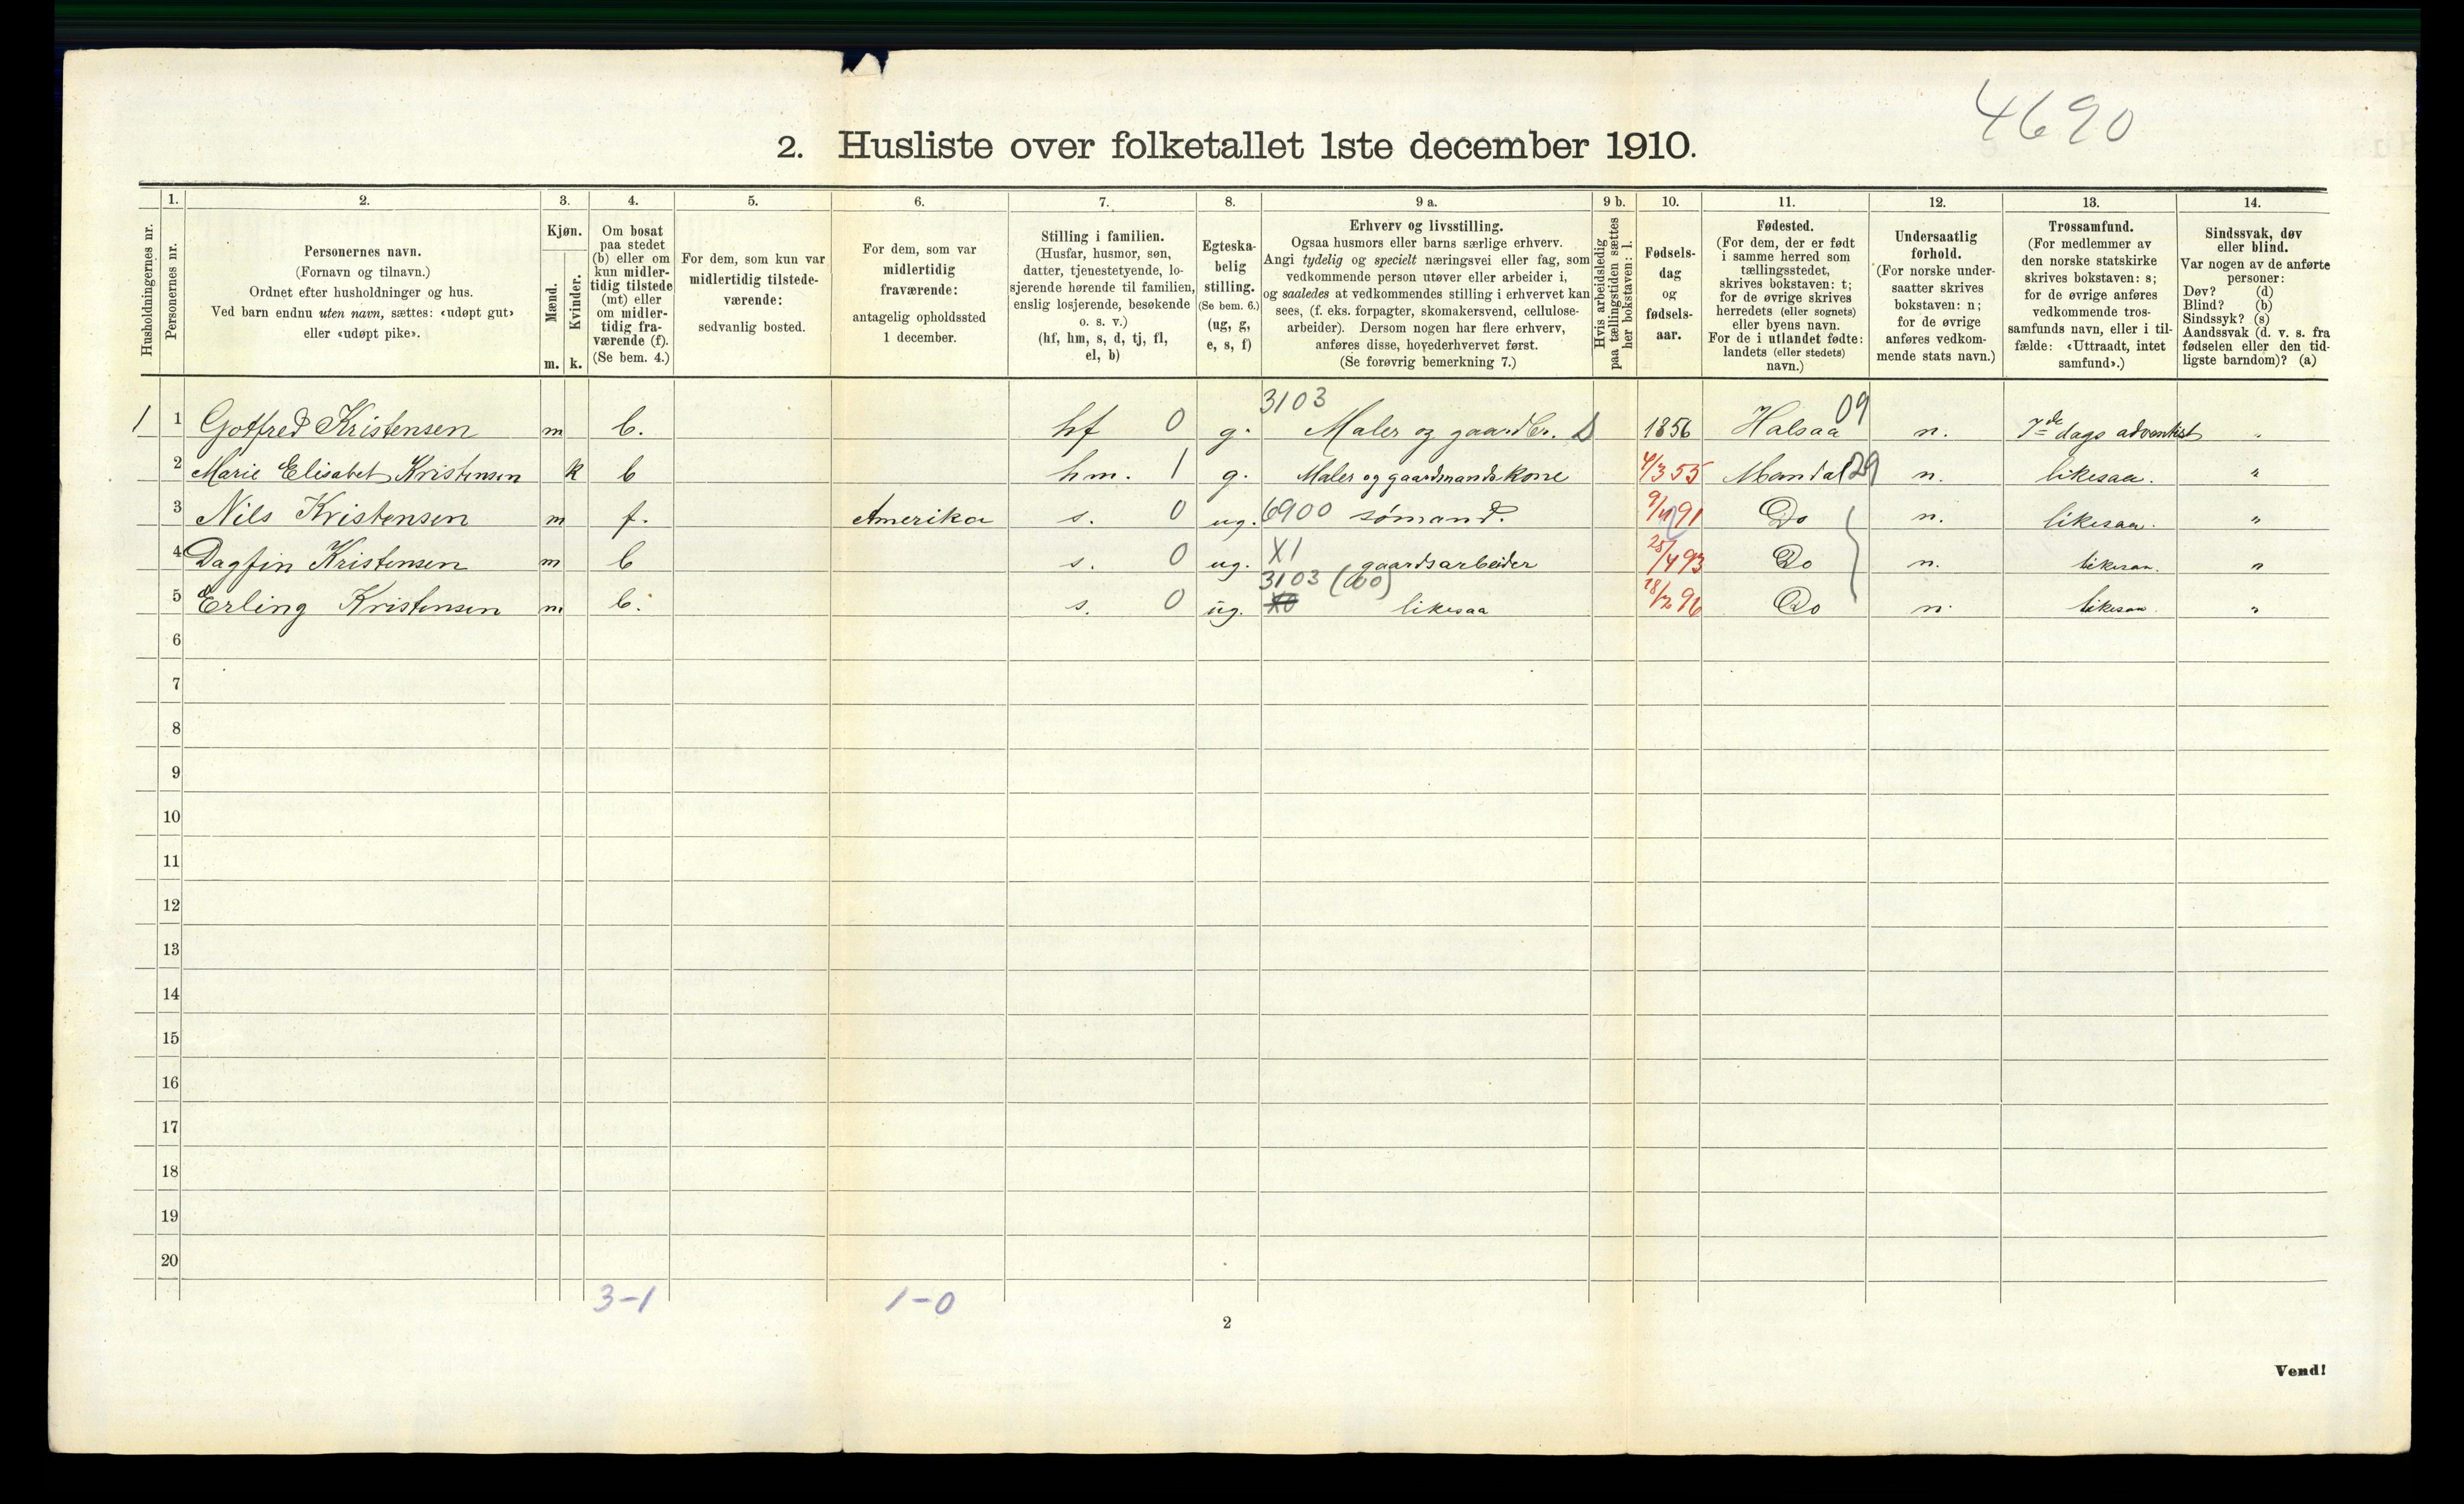 4690
2. Husliste over folketallet 1ste december 1910.
Husholdningernes nr.
1. Personernes nr.
2. Personernes navn.
(Fornavn og tilnavn.)
Ordnet efter husholdninger og hus.
Ved barn endnu uten navn, sættes: «udøpt gut»
eller «udøpt pike».
3. Kjøn.
Mænd. m.
Kvinder. k.
4. Om bosat
paa stedet
(b) eller om
kun midler-
tidig tilstede
(mt) eller
om midler-
tidig fra-
værende (f).
(Se bem. 4.)
5. For dem, som kun var
midlertidig tilstede-
værende:
sedvanlig bosted.
6. For dem, som var
midlertidig
fraværende:
antagelig opholdssted
1 december.
7. Stilling i familien.
(Husfar, husmor, søn,
datter, tjenestetyende, lo-
sjerende hørende til familien,
enslig losjerende, besøkende
o. s. v.)
(hf, hm, s, d, tj, fl,
el, b)
8. Egteska-
belig
stilling.
(Se bem. 6.)
(ug, g,
e, s, f)
9 a. Erhverv og livsstilling.
Ogsaa husmors eller barns særlige erhverv.
Angi tydelig og specielt næringsvei eller fag, som
vedkommende person utøver eller arbeider i,
og saaledes at vedkommendes stilling i erhvervet kan
sees, (f. eks. forpagter, skomakersvend, cellulose-
arbeider). Dersom nogen har flere erhverv,
anføres disse, hovederhvervet først.
(Se forøvrig bemerkning 7.)
9 b. Hvis arbeidsledig
paa tællingstiden sættes
her bokstaven: l.
10. Fødsels-
dag
og
fødsels-
aar.
11. Fødested.
(For dem, der er født
i samme herred som
tællingsstedet,
skrives bokstaven: t;
for de øvrige skrives
herredets (eller sognets)
eller byens navn.
For de i utlandet fødte:
landets (eller stedets)
navn.)
12. Undersaatlig
forhold.
(For norske under-
saatter skrives
bokstaven: n;
for de øvrige
anføres vedkom-
mende stats navn.)
13. Trossamfund.
(For medlemmer av
den norske statskirke
skrives bokstaven: s;
for de øvrige anføres
vedkommende tros-
samfunds navn, eller i til-
fælde: «Uttraadt, intet
samfund».)
14. Sindssvak, døv
eller blind.
Var nogen av de anførte
personer:
Døv? (d)
Blind? (b)
Sindssyk? (s)
Aandssvak (d. v. s. fra
fødselen eller den tid-
ligste barndom)? (a)
3103
1 1 Gotfred Kristensen m b. hf 0 g. Maler og gaardbr. S 1856 Halsaa 09 n. 7de dags adventist "
2 Marie Elisabet Kristensen k b hm. 1 g. Maler og gaardmandskone 4/3 55 Mandal 29 n. likesaa. "
3 Nils Kristensen m f. Amerika s. 0 ug. 6900 sømand. 9/11 91 Do n. likesaa. "
4 Dagfin Kristensen m b s. 0 ug. X1 gaardsarbeider 25/4 93 Do n. likesaa. "
3103 (00)
5 Erling Kristensen m b. s. 0 ug. likesaa 96 Do n. likesaa. "
6
7
8
9
10
11
12
13
14
15
16
17
18
19
20
3-1 1-0
2
Vend!